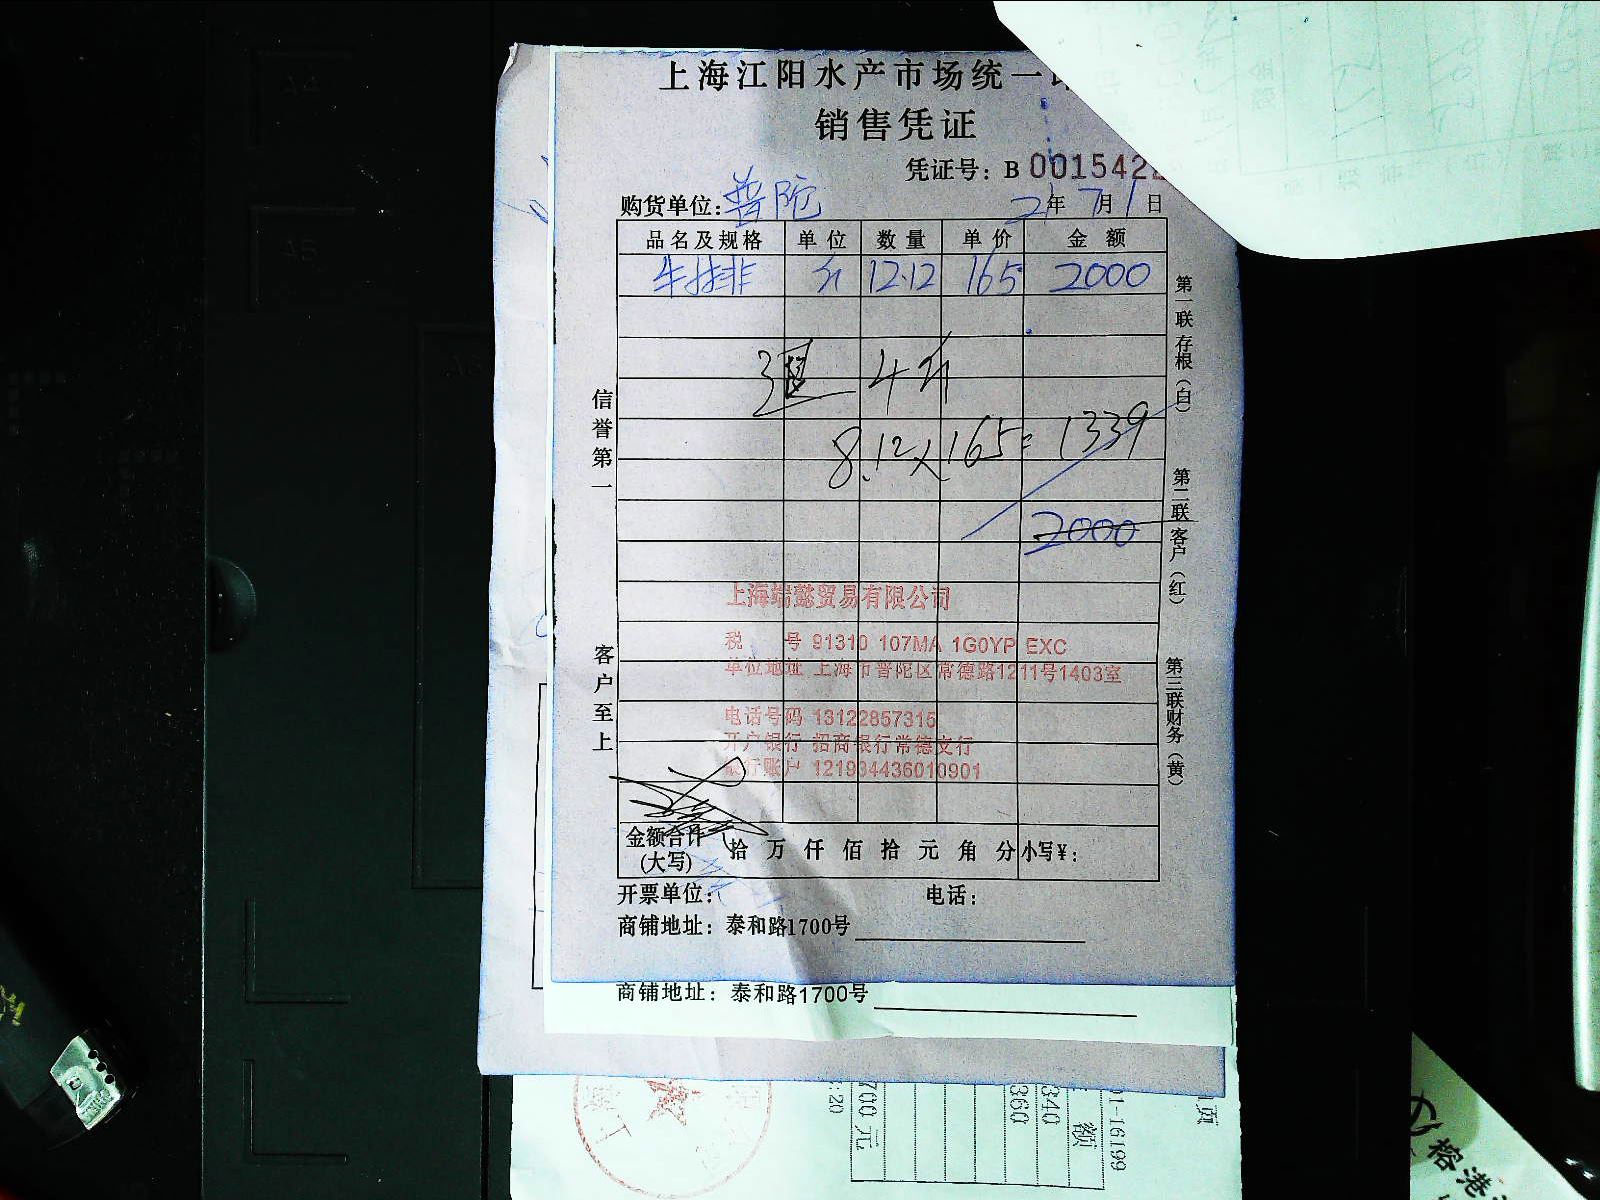 上海江阳水产市场统一
销售凭证
凭证号：B 0015422
购货单位：普陀 21年7月1日
品名及规格 单位 数量 单价 金额
牛排 斤 12.12 165 2000
退 4斤
8.12×165=1339
2000
信誉第一
客户至上
第一联存根（白）
第二联客户（红）
第三联财务（黄）
上海端懿贸易有限公司
税 号 91310 107MA 1G0YP EXC
单位地址 上海市普陀区常德路1211号1403室
电话号码 13122857315
开户银行 招商银行常德支行
银行账户 121934436010901
金额合计(大写) 拾 万 仟 佰 拾 元 角 分 小写￥：
开票单位： 电话：
商铺地址：泰和路1700号
商铺地址：泰和路1700号
01-16199
额
340
360
700元
:20
页
榕港